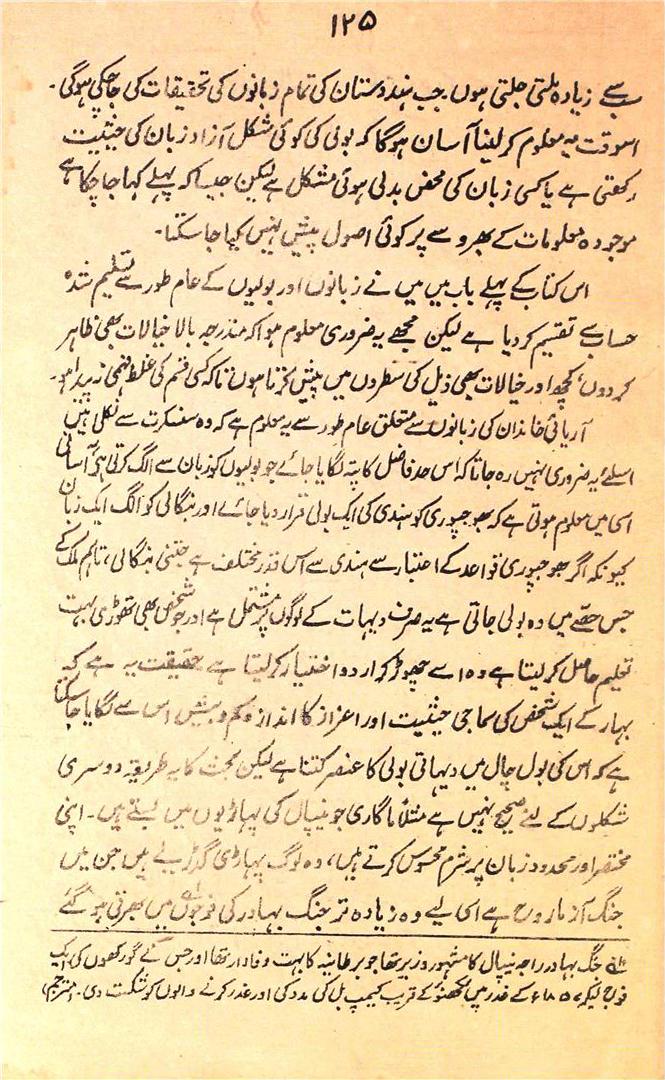 ۱۲۵
سے زیادہ ملتی جلتی ہوں۔ جب ہندوستان کی تمام زبانوں کی تحقیقات کی جا چکی ہوگی۔
اسوقت یہ معلوم کر لینا آسان ہوگا کہ بولی کی کوئی شکل آزاد زبان کی حیثیت
رکھتی ہے یا کسی زبان کی محض بدلی ہوئی شکل ہے لیکن جیسا کہ پہلے کہا جا چکا ہے
موجودہ معلومات کے بھروسے پر کوئی اصول پیش نہیں کیا جا سکتا۔
اس کتاب کے پہلے باب میں میں نے زبانوں اور بولیوں کے عام طور سے تسلیم شدہ
حساب سے تقسیم کر دیا ہے لیکن مجھے یہ ضروری معلوم ہوا کہ مندرجہ بالا خیالات بھی ظاہر
کردوں، کچھ اور خیالات بھی ذیل کی سطروں میں پیش کرتا ہوں تاکہ کسی قسم کی غلط فہمی نہ پیدا ہو۔
آریائی خاندان کی زبانوں سے متعلق عام طور سے یہ معلوم ہے کہ وہ سنسکرت سے نکلی ہیں
اسلئے یہ ضروری نہیں رہ جاتا کہ اس حد فاضل کا پتہ لگایا جائے جو بولیوں کو زبان سے الگ کرتی ہی آسانی
اسی میں معلوم ہوتی ہے کہ بھوجپوری کو ہندی کی ایک بولی قرار دیا جائے اور بنگالی کو الگ ایک زبان
کیونکہ اگر بھوجپوری قواعد کے اعتبار سے ہندی سے اس قدر مختلف ہے جتنی بنگالی، تاہم ملک کے
جس حصّے میں وہ بولی جاتی ہے یہ صرف دیہات کے لوگوں پر مشتمل ہے اور جو شخص بھی تھوڑی بہت
تعلیم حاصل کر لیتا ہے وہ اسے چھوڑ کر اردو اختیار کر لیتا ہے حقیقت یہ ہے کہ
بہار کے ایک شخص کی سماجی حیثیت اور اعزاز کا اندازہ کم و بیش اس سے لگایا جا سکتا
ہے کہ اس کی بول چال میں دیہاتی بولی کا عنصر کتنا ہے لیکن بحث کا یہ طریقہ دوسری
شکلوں کے لئے صحیح نہیں ہے مثلاً ماگاری جو نیپال کی پہاڑیوں میں بستے ہیں۔ اپنی
مختصر اور محدود زبان پر شرم محسوس کرتے ہیں، وہ لوگ پہاڑی گڈریے ہیں جن میں
جنگ آزما روح ہے اسی لیے وہ زیادہ تر جنگ بہادر کی فوجوں میں بھرتی ہو گئے
جنگ بہادر راجہ نیپال کا مشہور وزیر تھا جو برطانیہ کا بہت وفادار تھا اور جس نے گورکھوں کی ایک
فوج لیکر ۱۸۵۷ء کے غدر میں لکھنؤ کے قریب کیمپ بل کی مدد کی اور غدر کرنے والوں کو شکست دی۔ (مترجم)